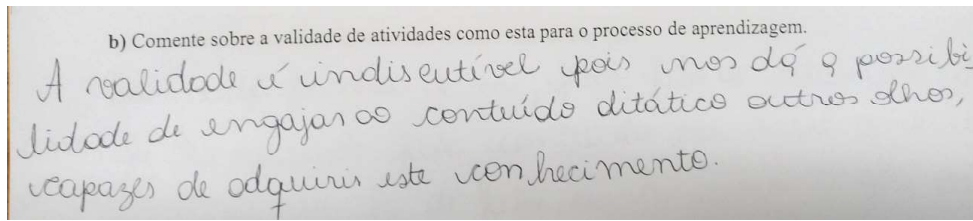 b) Comente sobre a validade de atividades como esta para o processo de aprendizagem.
A validade é indiscutível pois nos dá a possibi
lidade de engajar ao conteúdo ditático outros olhos,
capazes de adquirir este conhecimento.